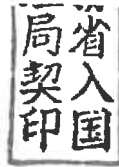 省入国
局契印